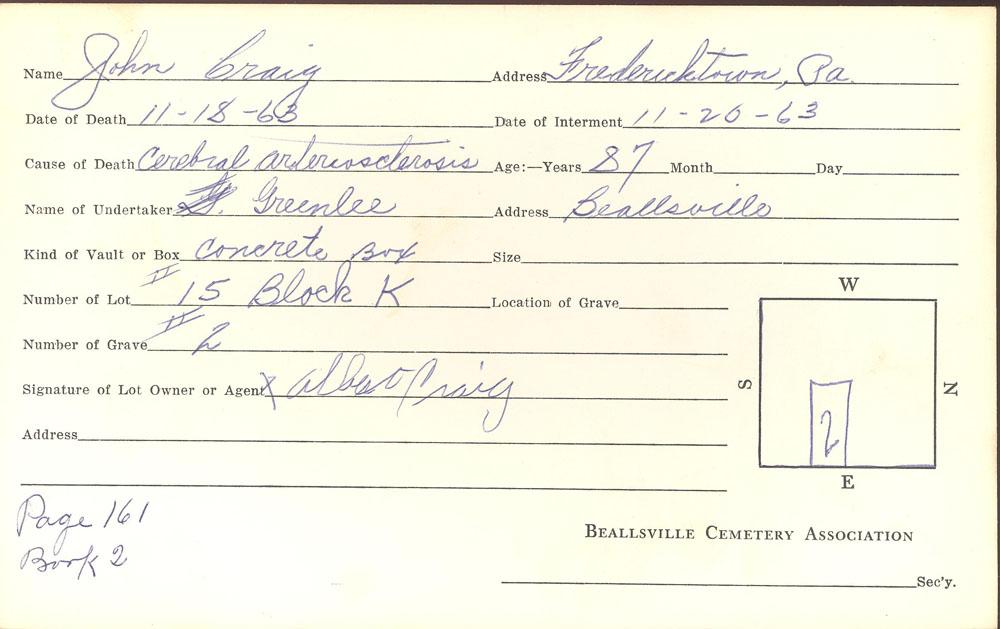 Name John Craig Address Fredericktown, Pa.
Date of Death 11-18-63 Date of Interment 11-20-63
Cause of Death Cerebral arteriosclerosis Age:—Years 87 Month Day
Name of Undertaker Greenlee Address Beallsville
Kind of Vault or Box Concrete Box Size
Number of Lot # 15 Block K Location of Grave
Number of Grave # 2
Signature of Lot Owner or Agent X Albert Craig
Address
W
S
N
2
E
Page 161
Book 2
BEALLSVILLE CEMETERY ASSOCIATION
Sec'y.